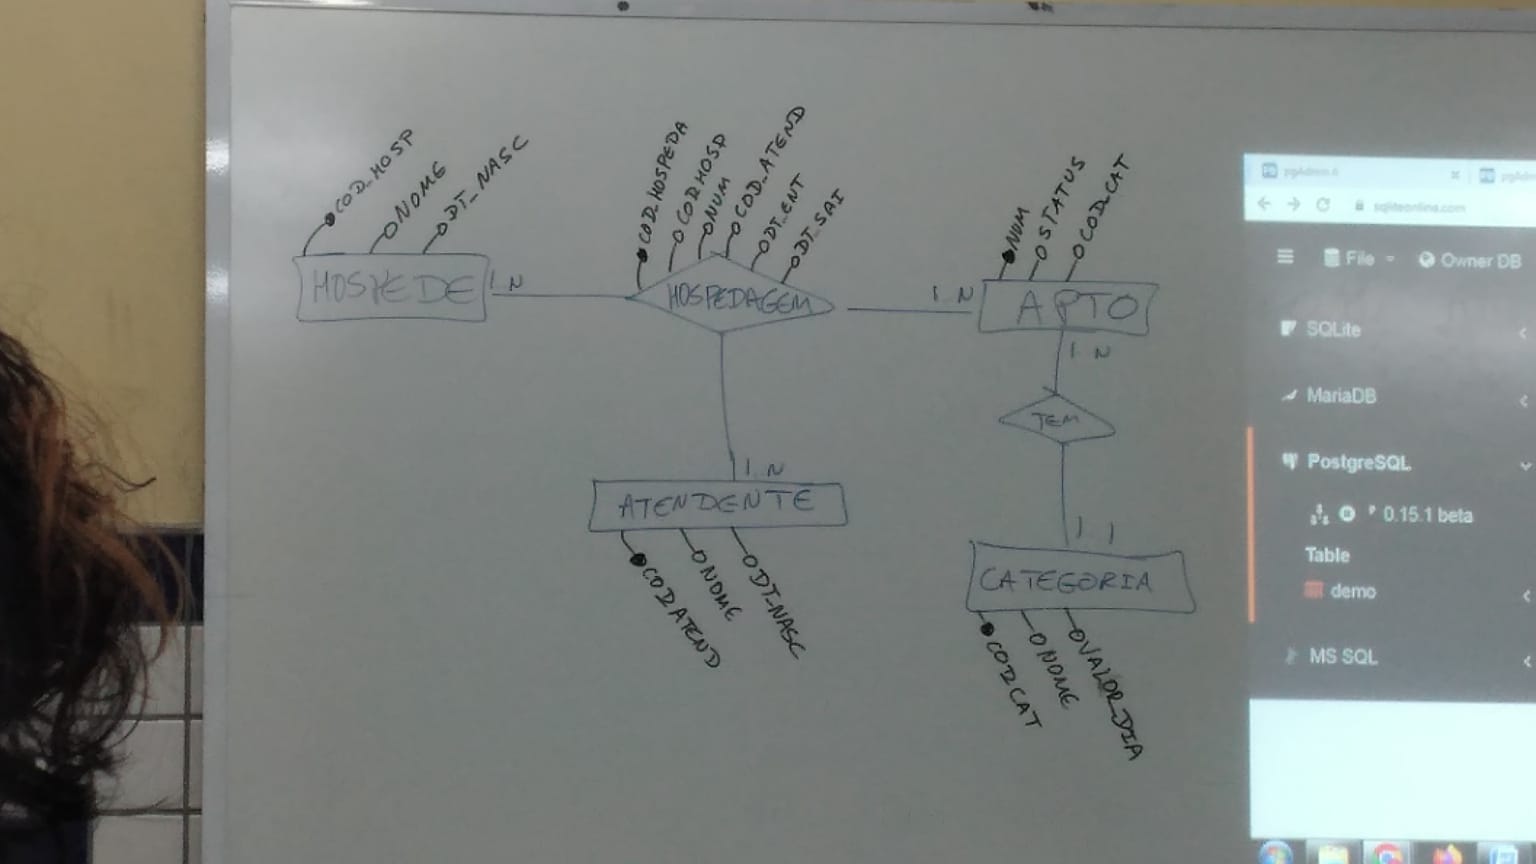 COD_HOSP
NOME
DT_NASC
HOSPEDE
1 N
COD_HOSPEDA
CODHOSP
NUM
COD_ATEND
DT_ENT
DT_SAI
HOSPEDAGEM
1 N
NUM
STATUS
COD_CAT
APTO
1 N
TEM
1 1
CATEGORIA
CODCAT
NOME
VALOR_DIA
1 N
ATENDENTE
CODATEND
NOME
DT_NASC
sqliteonline.com
File
Owner DB
SQLite
MariaDB
PostgreSQL
P 0.15.1 beta
Table
demo
MS SQL